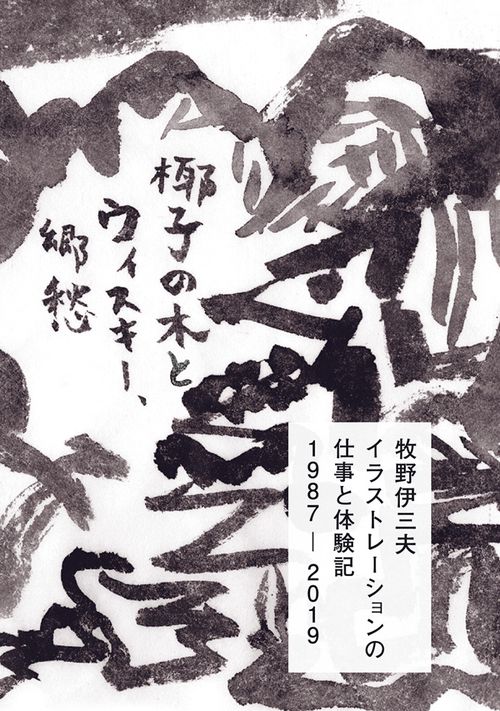 椰子の木と
ウィスキー、
郷愁
牧野伊三夫
イラストレーションの
仕事と体験記
1987―2019